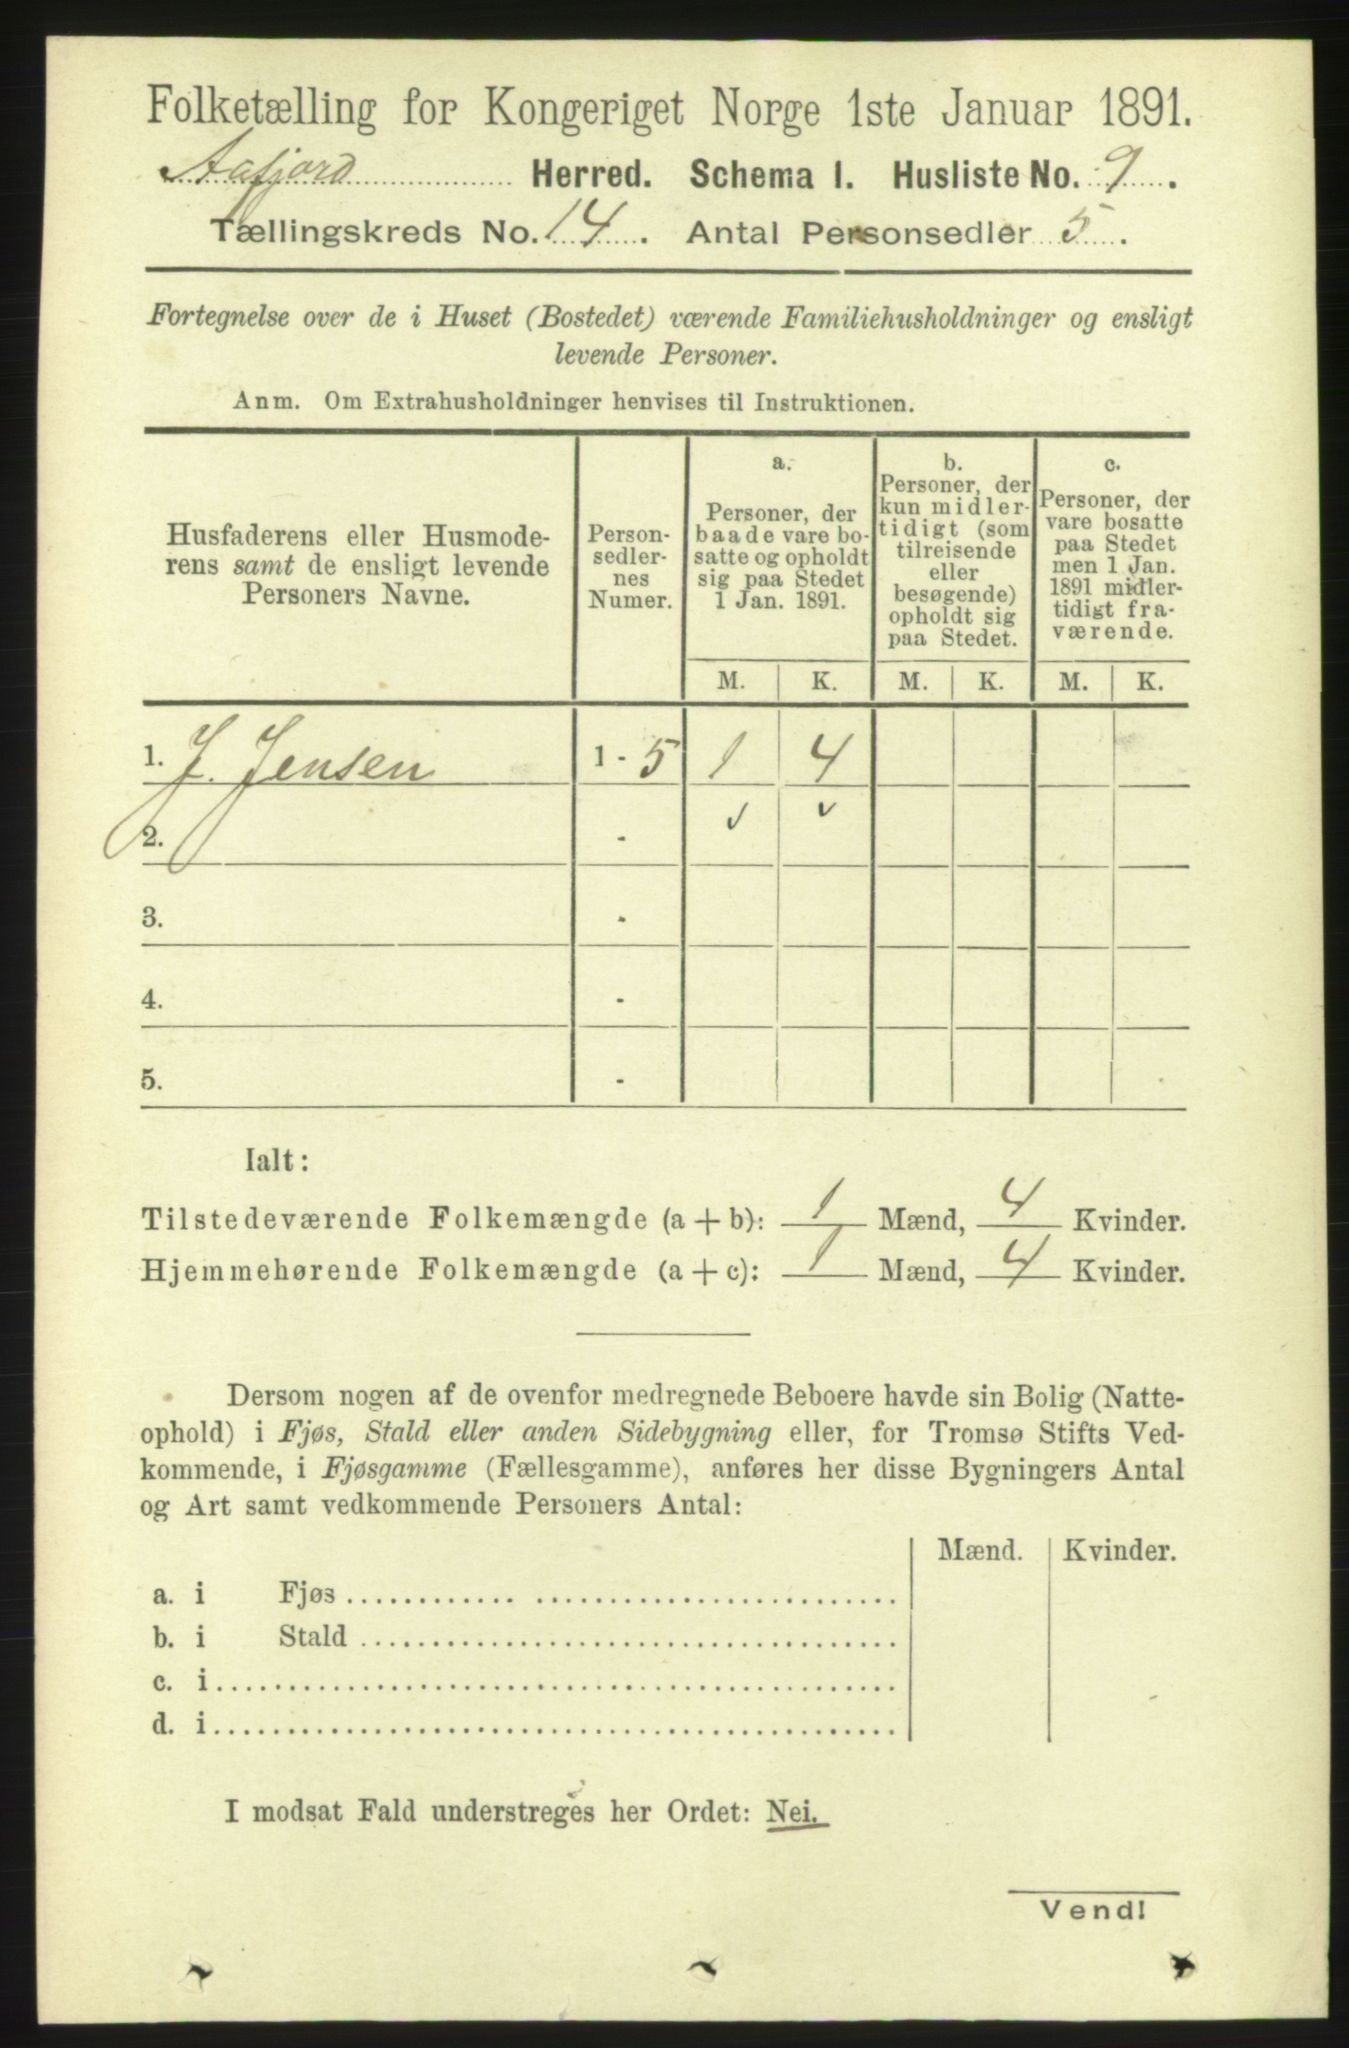 Folketælling for Kongeriget Norge 1ste Januar 1891.
Aafjord Herred. Schema I. Husliste No. 9.
Tællingskreds No. 14. Antal Personsedler 5.
Fortegnelse over de i Huset (Bostedet) værende Familiehusholdninger og ensligt
levende Personer.
Anm. Om Extrahusholdninger henvises til Instruktionen.
Husfaderens eller Husmode-
rens samt de ensligt levende
Personers Navne.
Person-
sedler-
nes
Numer.
a.
Personer, der
baade vare bo-
satte og opholdt
sig paa Stedet
1 Jan. 1891.
b.
Personer, der
kun midler-
tidigt (som
tilreisende
eller
besøgende)
opholdt sig
paa Stedet.
c.
Personer, der
vare bosatte
paa Stedet
men 1 Jan.
1891 midler-
tidigt fra-
værende.
M. K. M. K. M. K.
1. J. Jensen 1 - 5 1 4
2. - ✓ ✓
3. -
4. -
5. -
Ialt:
Tilstedeværende Folkemængde (a + b): 1 Mænd, 4 Kvinder.
Hjemmehørende Folkemængde (a + c): 1 Mænd, 4 Kvinder.
Dersom nogen af de ovenfor medregnede Beboere havde sin Bolig (Natte-
ophold) i Fjøs, Stald eller anden Sidebygning eller, for Tromsø Stifts Ved-
kommende, i Fjøsgamme (Fællesgamme), anføres her disse Bygningers Antal
og Art samt vedkommende Personers Antal:
Mænd. Kvinder.
a. i Fjøs
b. i Stald
c. i
d. i
I modsat Fald understreges her Ordet: Nei.
Vend!